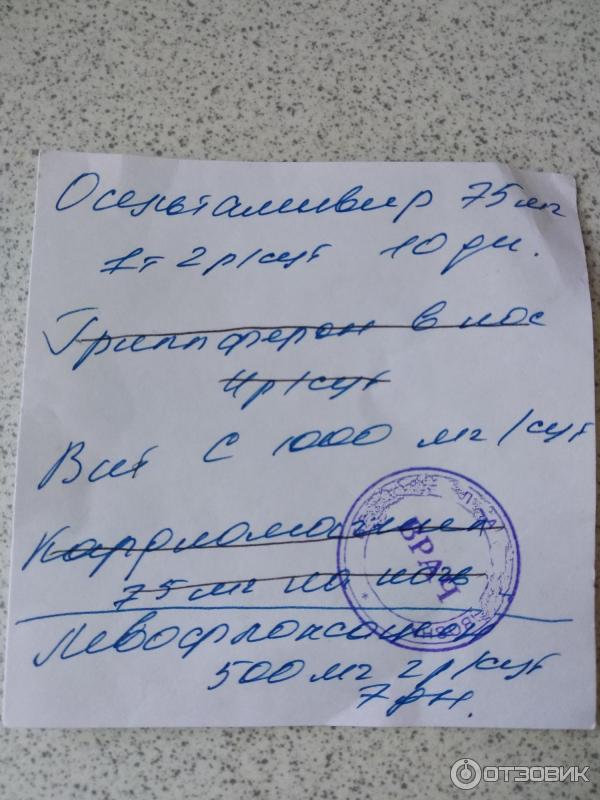 Осельтамивир 75 мг
1т 2 р/сут 10 дн.
Гриппферон в нос
4 р/сут
Вит С 1000 мг/сут
Кардиомагнил
75 мг на ночь
ВРАЧ
Левофлоксацин
500 мг 2 р/сут
7 дн.
ОТЗОВИК